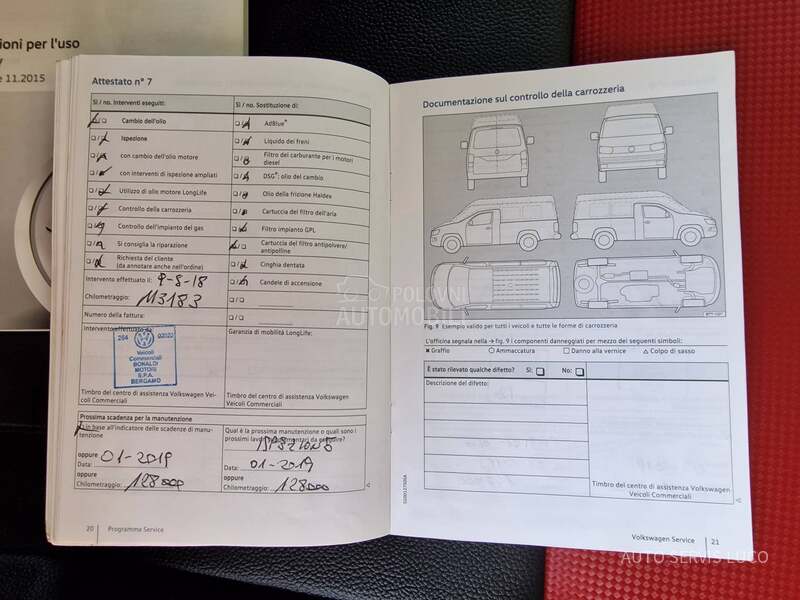 ioni per l'uso
e 11.2015
Attestato n° 7
Sì / no. Interventi eseguiti:
Cambio dell'olio
Ispezione
con cambio dell'olio motore
con interventi di ispezione ampliati
Utilizzo di olio motore LongLife
Controllo della carrozzeria
Controllo dell'impianto del gas
Si consiglia la riparazione
Richiesta del cliente
(da annotare anche nell'ordine)
Intervento effettuato il: 9-8-18
Chilometraggio: 113183
Numero della fattura:
Intervento effettuato da
264 02020
Veicoli
Commerciali
BONALDI
MOTORI
S.P.A.
BERGAMO
Timbro del centro di assistenza Volkswagen Vei-
coli Commerciali
Sì / no. Sostituzione di:
AdBlue®
Liquido dei freni
Filtro del carburante per i motori
diesel
DSG®: olio del cambio
Olio della frizione Haldex
Cartuccia del filtro dell'aria
Filtro impianto GPL
Cartuccia del filtro antipolvere/
antipolline
Cinghia dentata
Candele di accensione
Garanzia di mobilità LongLife:
Timbro del centro di assistenza Volkswagen
Veicoli Commerciali
Prossima scadenza per la manutenzione
in base all'indicatore delle scadenze di manu-
tenzione
oppure
Data: 01-2019
oppure
Chilometraggio: 128000
Qual è la prossima manutenzione o quali sono i
prossimi lavori supplementari da eseguire?
ISPEZIONE
Data: 01-2019
oppure
Chilometraggio: 128000
20 Programma Service
Documentazione sul controllo della carrozzeria
Fig. 9 Esempio valido per tutti i veicoli e tutte le forme di carrozzeria
L'officina segnala nella → fig. 9 i componenti danneggiati per mezzo dei seguenti simboli:
Graffio Ammaccatura Danno alla vernice Colpo di sasso
È stato rilevato qualche difetto? Sì: No:
Descrizione del difetto:
Timbro del centro di assistenza Volkswagen
Veicoli Commerciali
Volkswagen Service 21
POLOVNI
AUTOMOBILI
AUTO SERVIS LUCO